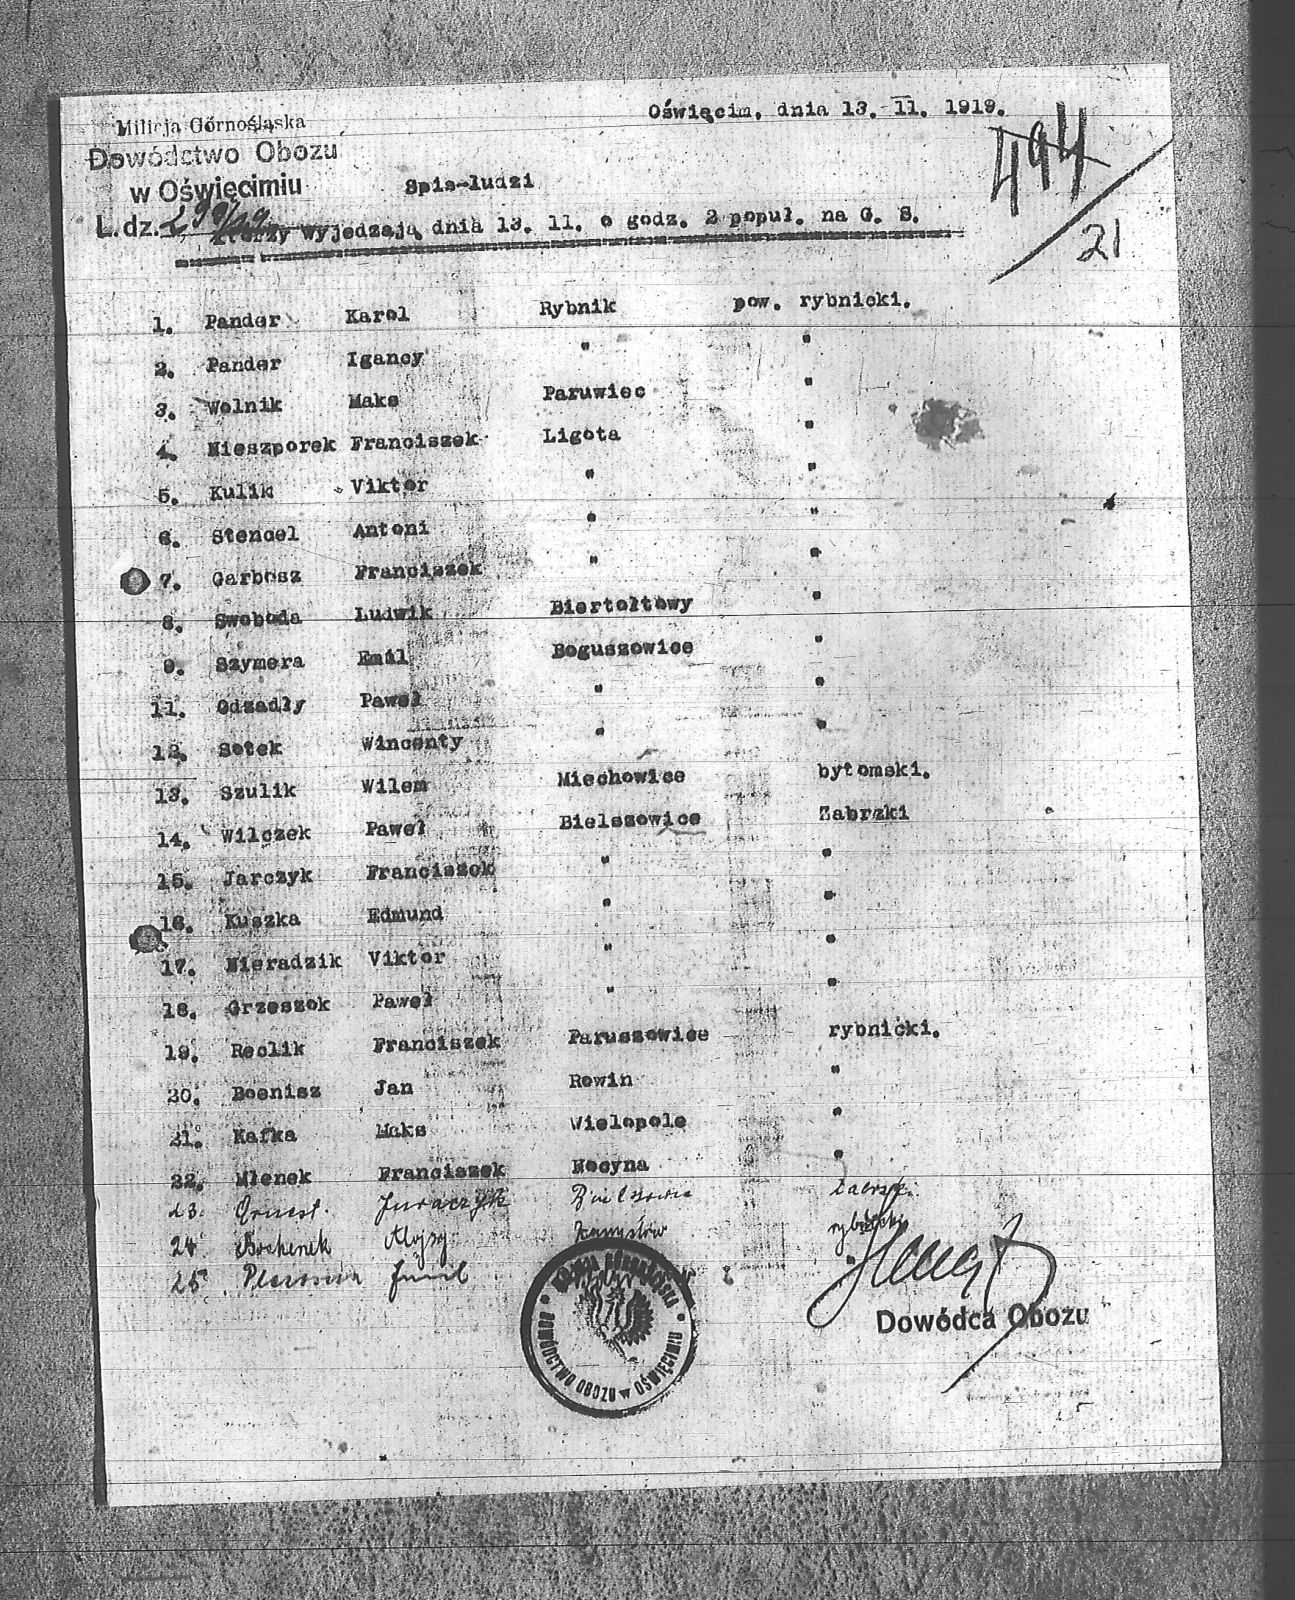 Oświęcim, dnia 13. 11. 1919.
Milicja Górnośląska
Dowództwo Obozu
w Oświęcimiu
L. dz.
494
21
Spis-ludzi
którzy wyjedzają dnia 13. 11. o godz. 2 popuł. na G. S.
1. Pander Karol Rybnik pow. rybnicki.
2. Pander Igancy " "
3. Wolnik Maks Paruwiec "
4. Nieszporek Franciszek Ligota "
5. Kulik Viktor " "
6. Stencel Antoni " "
7. Garbosz Franciszek " "
8. Swoboda Ludwik Biertołtowy "
9. Szymera Emil Boguszowice "
11. Odzadły Paweł " "
12. Sotek Wincenty " "
13. Szulik Wilem Miechowice bytomski.
14. Wilczek Paweł Bielszowice Zabrzki
15. Jarczyk Franciszek " "
16. Kuszka Edmund " "
17. Nieradzik Viktor " "
18. Grzeszok Paweł " "
19. Reclik Franciszek Paruszowice rybnicki.
20. Boenisz Jan Rowin "
21. Kafka Maks Wielopole "
22. Młenek Franciszek Nocyna "
23. Juraczyk
24. Bochenek Alojzy Zamysłów rybnicki
25. "
Dowódca Obozu
DOWÓDCTWO OBOZU w OŚWIĘCIMIU